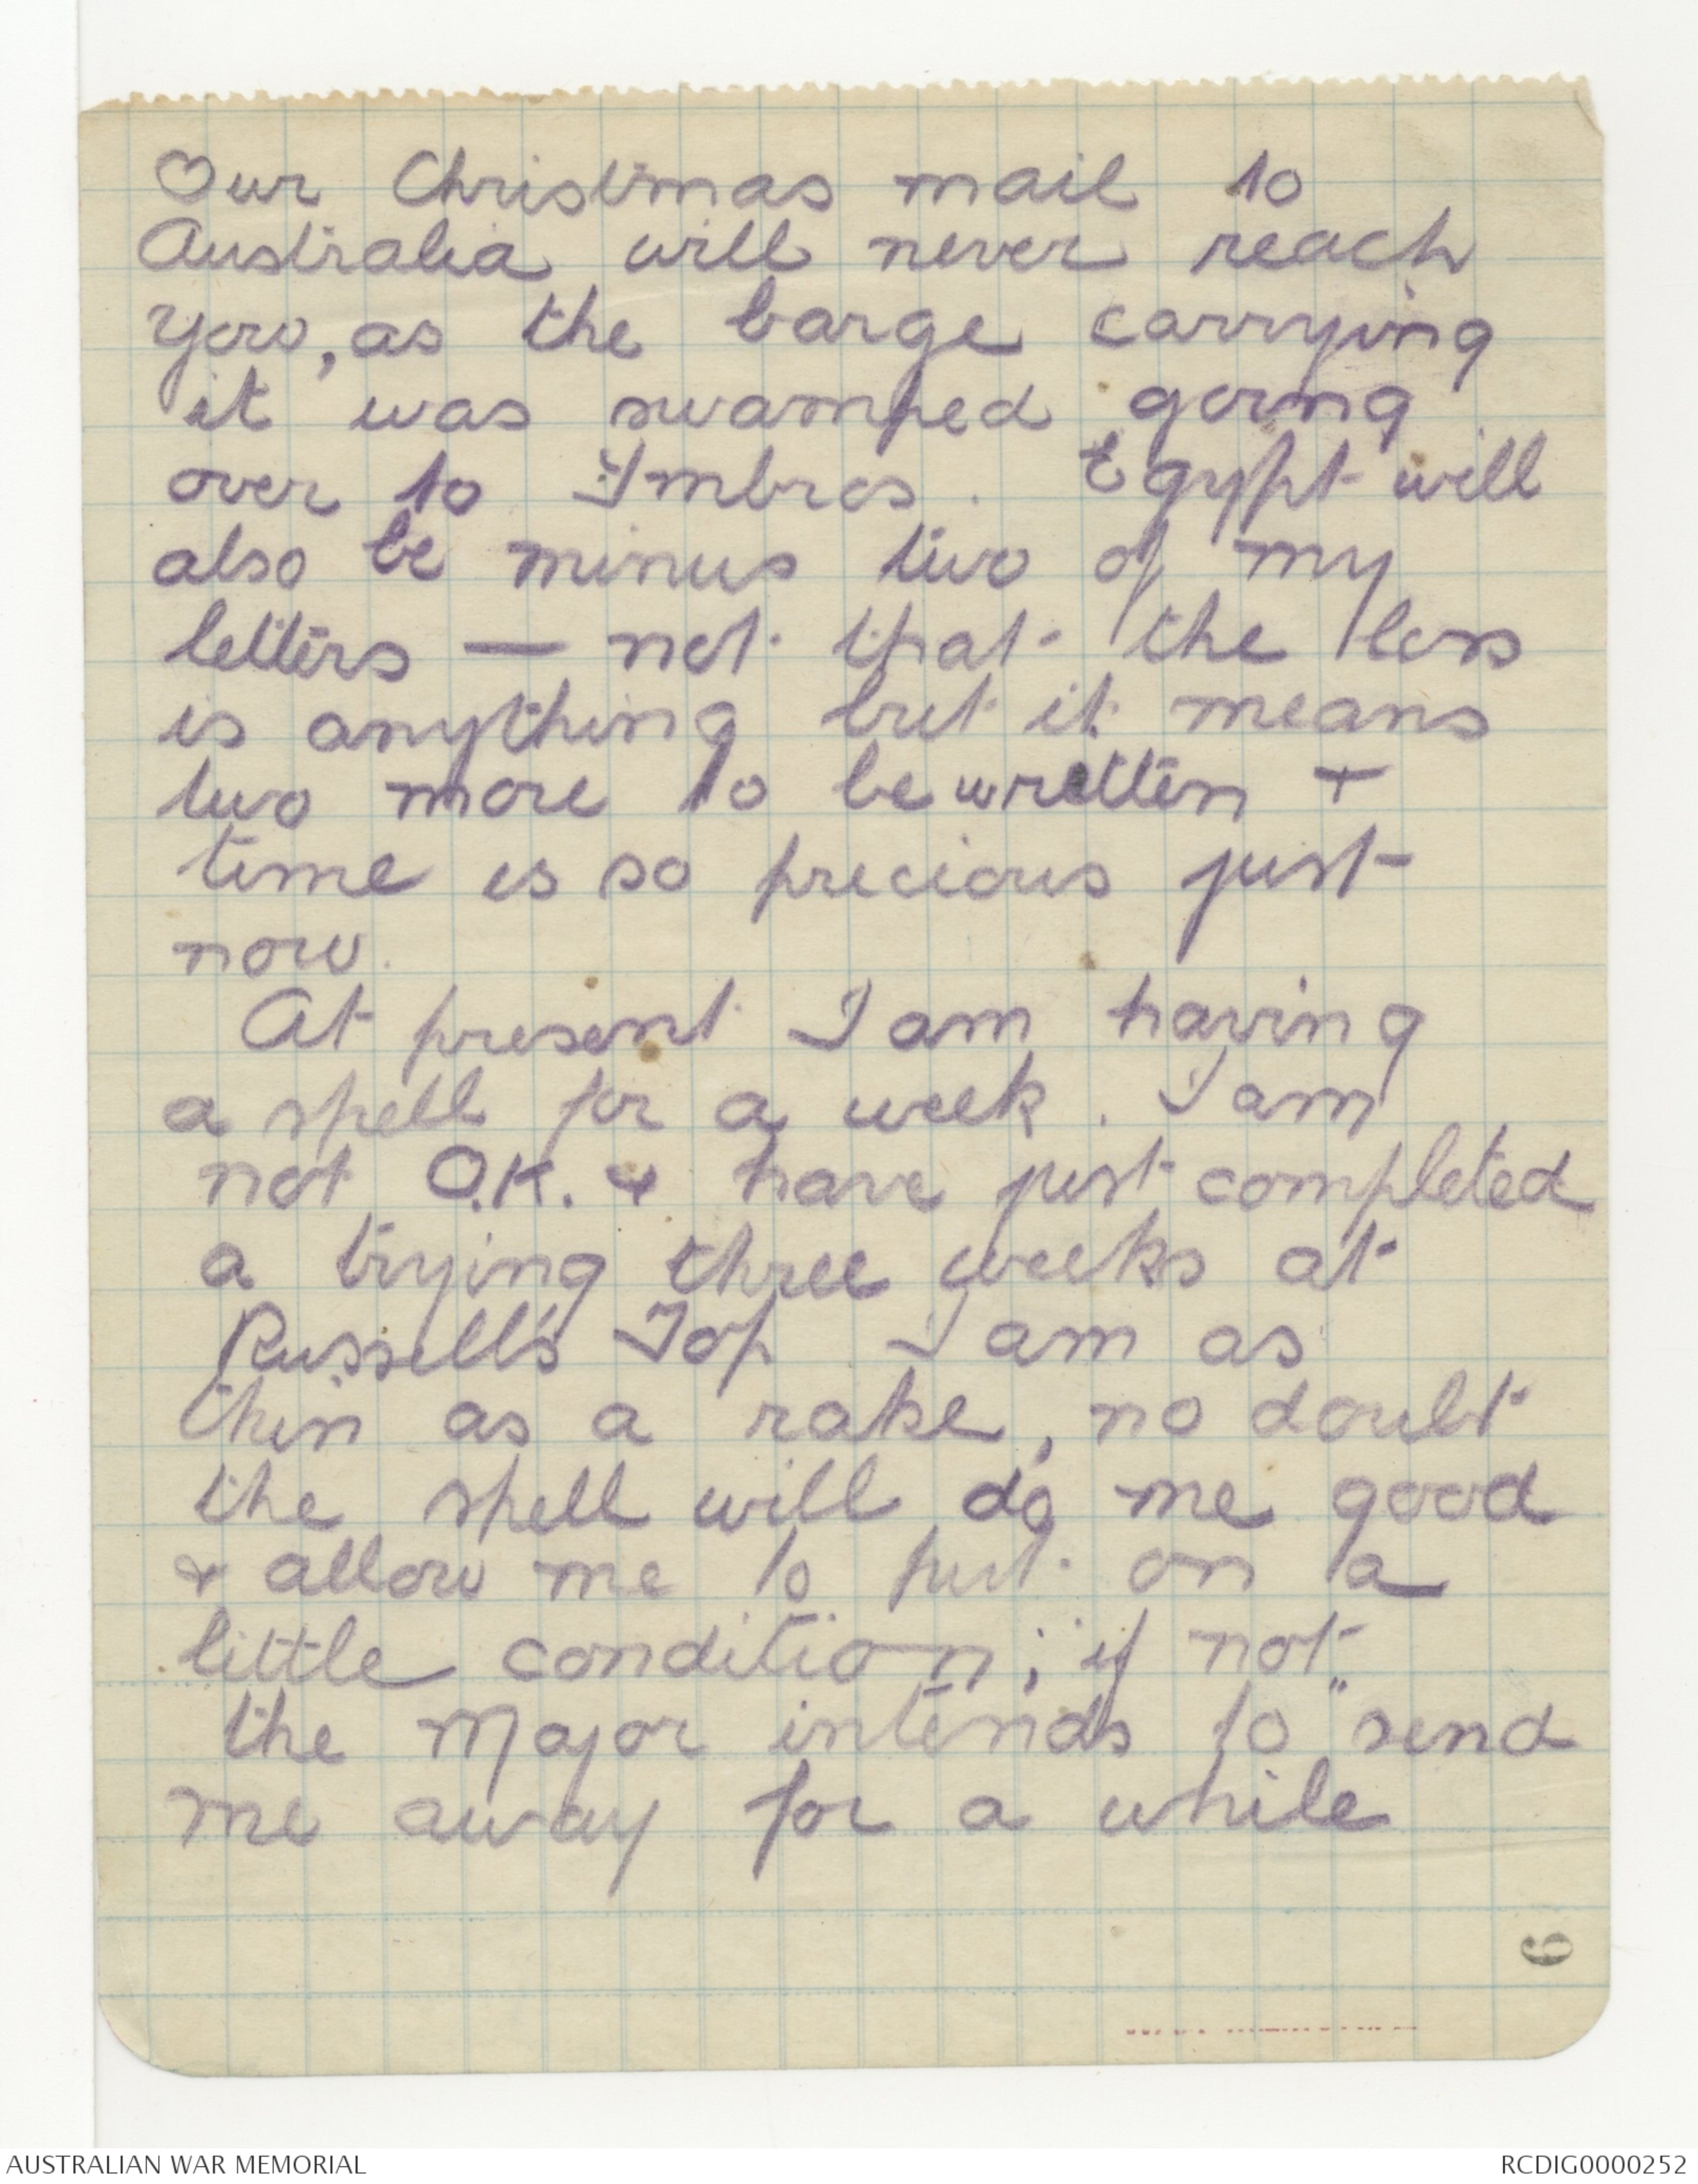 Our Christmas mail to
Australia will never reach
you, as the barge carrying
it was swamped going
over to Imbros. Egypt will
also be minus two of my
letters — not that the loss
is anything but it means
two more to be written +
time is so precious just
now.
At present I am having
a spell for a week. I am
not O.K. & have just completed
a trying three weeks at
Russell's Top I am as
thin as a rake, no doubt
the spell will do me good
& allow me to put on a
little condition; if not
the Major intends to "send
me away for a while
6
AUSTRALIAN WAR MEMORIAL
RCDIG0000252